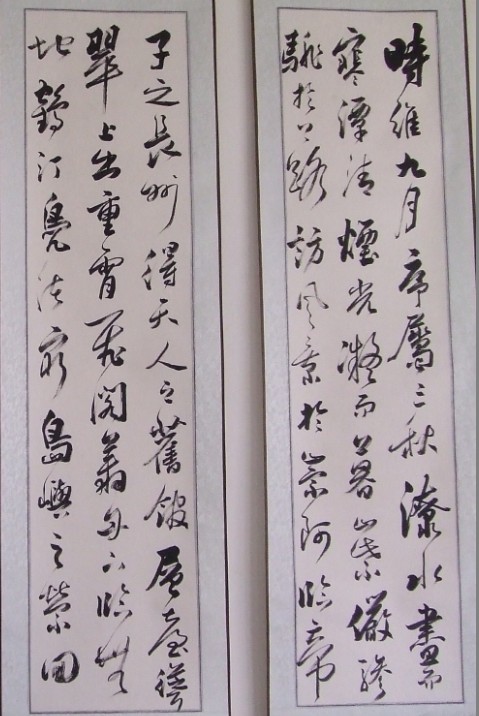 時維九月序屬三秋潦水盡而
寒潭清煙光凝而暮山紫儼驂
騑於上路訪風景於崇阿臨帝
子之長洲得天人之舊館層臺聳
翠上出重霄飛閣翔丹下臨無
地鶴汀鳧渚窮島嶼之縈回